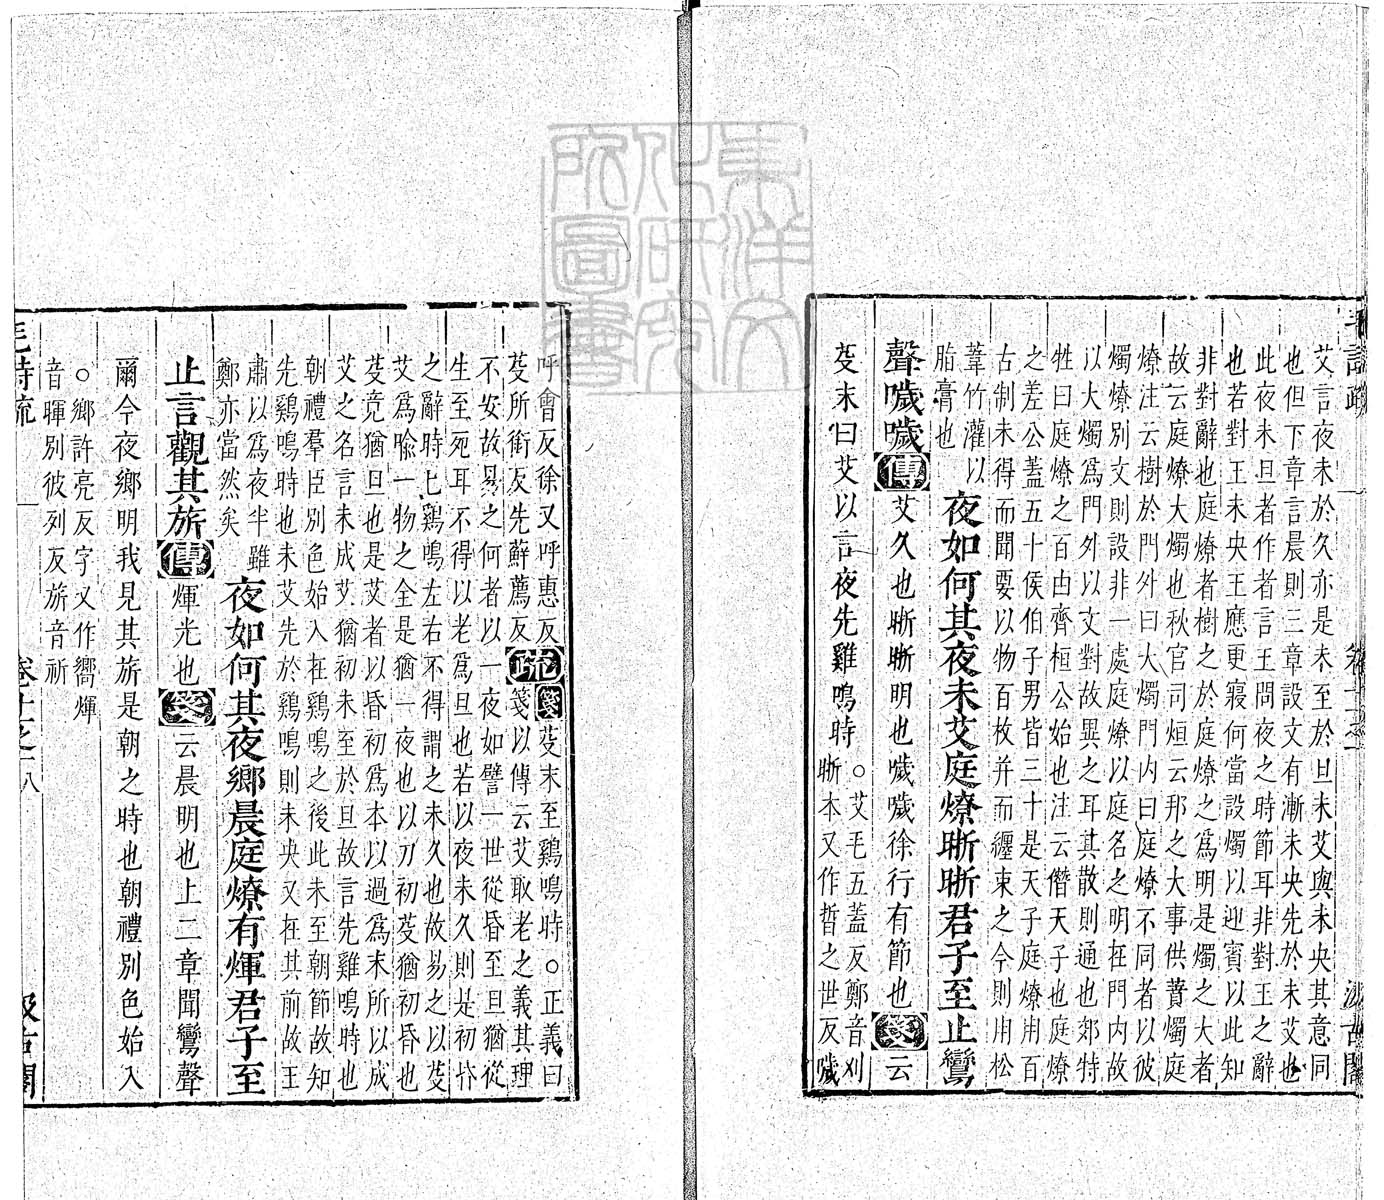 艾言夜未於久亦是未至於旦未艾與未央其意同
也但下章言晨則三章設文有漸未央先於未艾也
此夜未旦者作者言王問夜之時節耳非對王之辭
也若對王未央王應更寢何當設燭以迎賓以此知
非對辭也庭燎者樹之於庭燎之爲明是燭之大者
故云庭燎大燭也秋官司烜云邦之大事供蕡燭庭
燎注云樹於門外曰大燭門內曰庭燎不同者以彼
燭燎別文則設非一處庭燎以庭名之明在門內故
以大燭爲門外以文對故異之耳其散則通也郊特
牲曰庭燎之百由齊桓公始也注云僭天子也庭燎
之差公蓋五十侯伯子男皆三十是天子庭燎用百
古制未得而聞要以物百枚并而纏束之今則用松
葦竹灌以
脂膏也
夜如何其夜未艾庭燎晣晣君子至止鸞
聲噦噦傳艾久也晣晣明也噦噦徐行有節也箋云
芟末曰艾以言夜先雞鳴時
○艾毛五蓋反鄭音刈
晣本又作晢之世反噦
呼會反徐又呼惠反
芟所銜反先蘇薦反
疏箋芟末至鷄鳴時○正義曰
箋以傳云艾取老之義其理
不安故易之何者以一夜如譬一世從昏至旦猶從
生至死耳不得以老爲旦也若以夜未久則是初昏
之辭時已鷄鳴左右不得謂之未久也故易之以芟
艾爲喻一物之全是猶一夜也以刀初芟猶初昏也
芟竟猶旦也是艾者以昏初爲本以過爲末所以成
艾之名言未成艾猶初未至於旦故言先雞鳴時也
朝禮羣臣別色始入在鷄鳴之後此未至朝節故知
先鷄鳴時也未艾先於鷄鳴則未央又在其前故王
肅以爲夜半雖
鄭亦當然矣
夜如何其夜鄉晨庭燎有煇君子至
止言觀其旂傳煇光也箋云晨明也上二章聞鸞聲
爾今夜鄉明我見其旂是朝之時也朝禮別色始入
○鄉許亮反字又作嚮煇
音暉別彼列反旂音祈
毛詩疏
卷十一之一
八
汲古閣